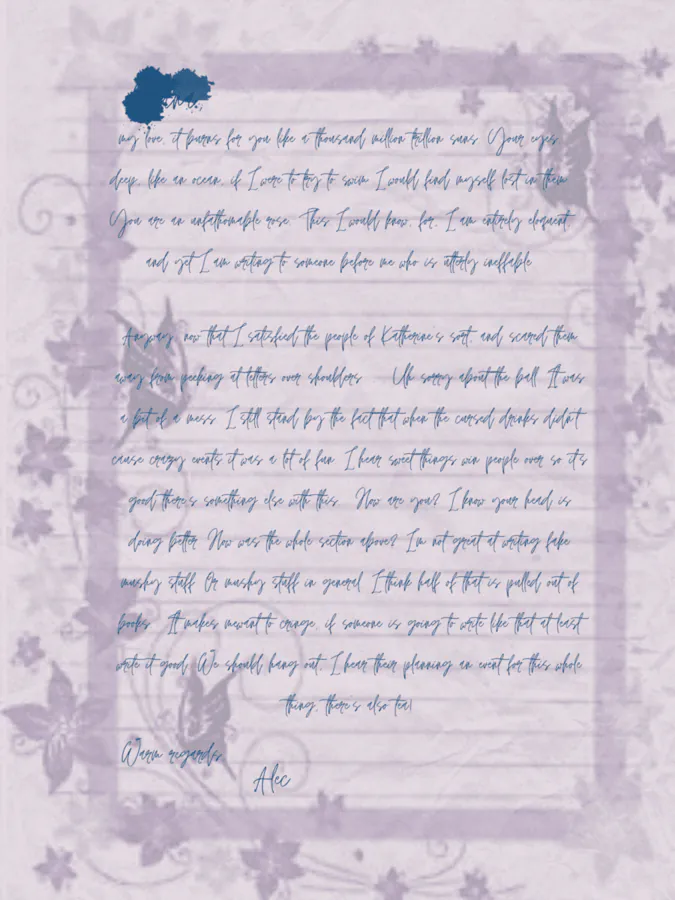 my love, it burns for you like a thousand million trillion suns. Your eyes
deep, like an ocean, if I were to try to swim I would find myself lost in them
You are an unfathomable rose. This I would know, for, I am entirely eloquent
and yet I am writing to someone before me who is utterly ineffable
Anyway, now that I satisfied the people of Katherine's sort, and scared them
away from peeking at letters over shoulders. Uh sorry about the ball. It was
a bit of a mess. I still stand by the fact that when the cursed drinks didn't
cause crazy events it was a lot of fun. I hear sweet things win people over so it's
good there's something else with this. How are you? I know your head is
doing better. How was the whole section above? I'm not great at writing fake
mushy stuff. Or mushy stuff in general. I think half of that is pulled out of
books. It makes mewant to cringe, if someone is going to write like that at least
write it good. We should hang out, I hear their planning an event for this whole
thing, there's also tea!
Warm regards
Alec